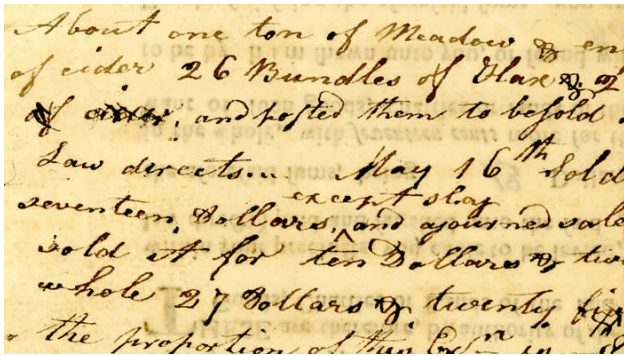 About one ton of Meadow & eng
of cider 26 Bundles of Flax &
of and posted them to be sold
Law directs... May 16th Sold
except slay
seventeen Dollars, and ajourned sale
sold it for ten Dollars & twe
whole 27 Dollars & twenty
the proportion of this